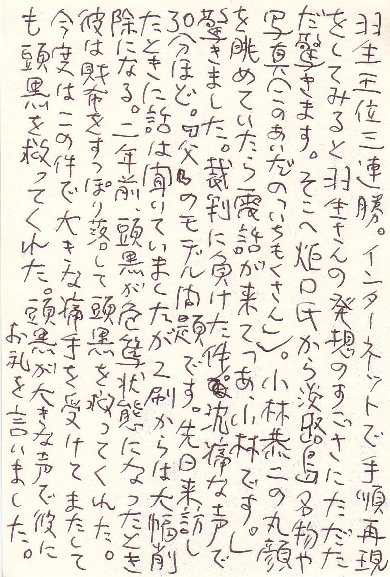 羽生王位三連勝。インターネットで手順再現
をしてみると羽生さんの発想のすごさにただた
だ驚きます。そこへ炬口氏から淡路島名物や
写真(このあいだの「いちもくさん」)。小林恭二の丸顔
を眺めていたら電話が来て「あ小林です。」
驚きました。裁判に負けた件。沈痛な声で
30分ほど。「父」のモデル問題です。先日来訪し
たときに話は聞いていましたが2刷からは大幅削
除になる。二年前頭黒が危篤状態になったとき
彼は財布をすっぽり落して頭黒を救ってくれた。
今度はこの件で大きな痛手を受けてまたして
も頭黒を救ってくれた。頭黒が大きな声で彼に
お礼を言いました。